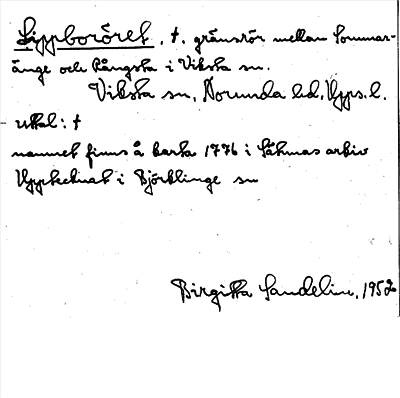 Lippboröret, †, gränsrör mellan Sommar-
änge och Rångsta i Viksta sn.
Viksta sn, Norunda hd, Upps. l.
uttal: †
namnet finns å karta 1776 i Såhmas arkiv
Upptecknat i Björklinge sn
Birgitta Sandelin, 1952